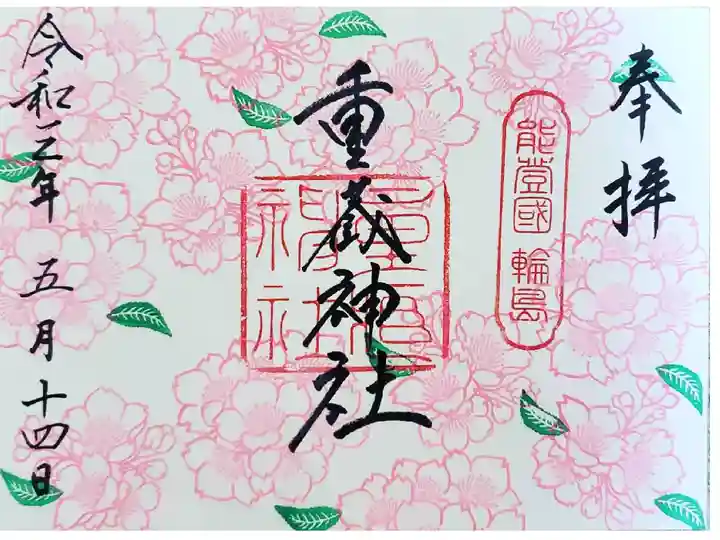 奉拝
能登國 輪島
重蔵神社
令和三年 五月 十四日